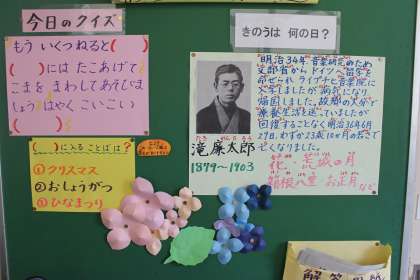 今日のクイズ
もう いくつねると(　　)
(　　)には たこあげて
こまを まわして あそびま
しょう はやく こいこい
(　　)
(　　)に入ることばは?
①クリスマス
②おしょうがつ
③ひなまつり
きのうは 何の日?
明治34年、音楽研究のため
文部省からドイツへ留学を
命ぜられ ライプチヒ音楽院に
入学しましたが 病気になり
帰国しました。故郷の大分で
療養生活を送っていましたが
回復することなく明治36年6月
29日、わずか23歳10ヵ月の若さで
亡くなりました。
滝 廉太郎
1879〜1903
花・荒城の月
箱根八里・お正月 など
解答用紙